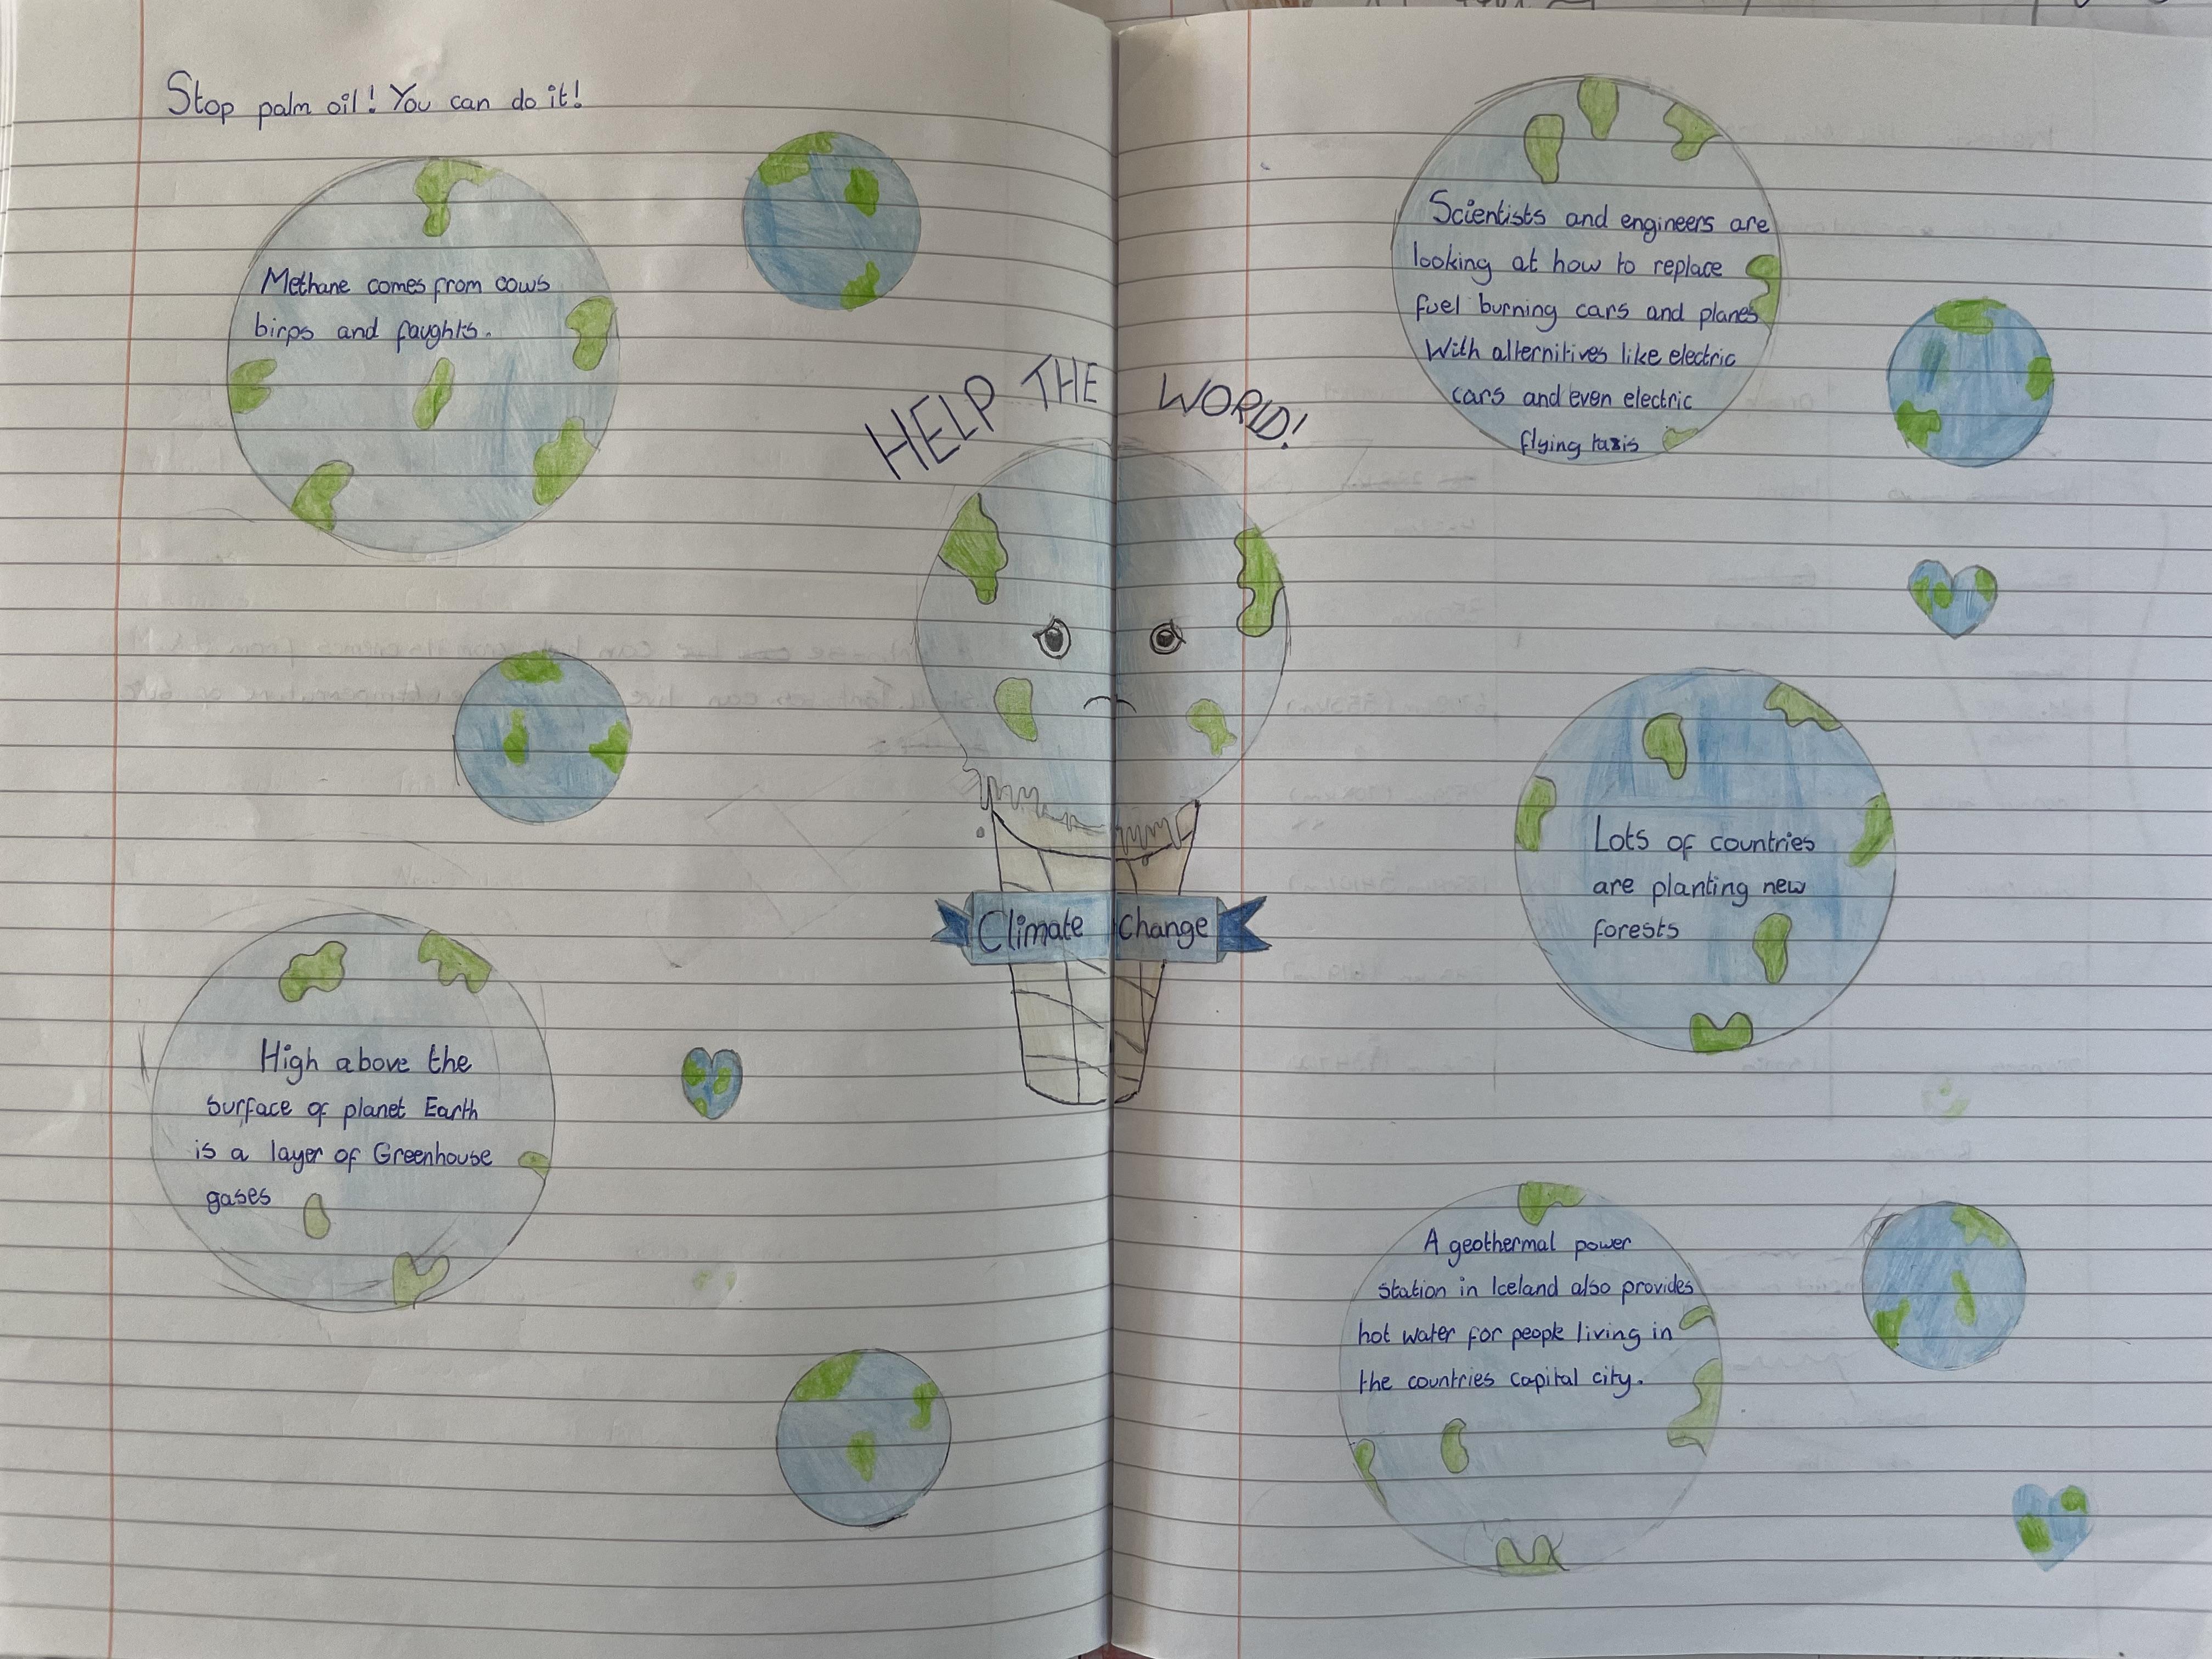 Stop palm oil! You can do it!
Methane comes from cows
birps and faughts.
High above the
surface of planet Earth
is a layer of Greenhouse
gases
HELP THE WORLD!
Climate Change
Scientists and engineers are
looking at how to replace
fuel burning cars and planes
With alternitives like electric
cars and even electric
flying taxis
Lots of countries
are planting new
forests
A geothermal power
station in Iceland also provides
hot water for people living in
the countries capital city.